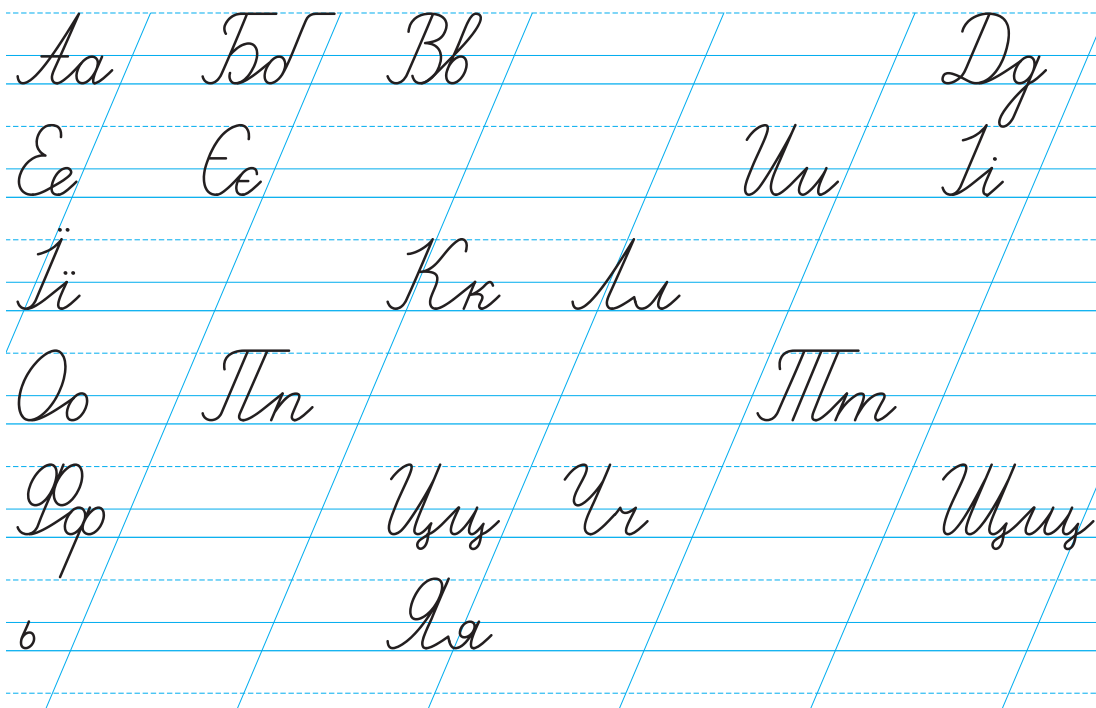 Аа Бб Вв Дд
Ее Єє Ии Іі
Її Кк Лл
Оо Пп Тт
Фф Цц Чч Щщ
ь Яя